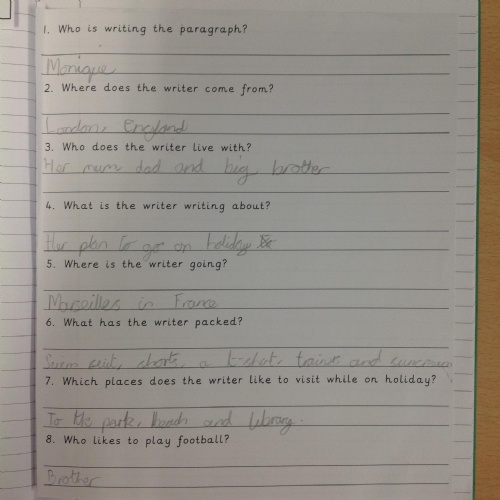 1. Who is writing the paragraph?
Monique
2. Where does the writer come from?
London, England
3. Who does the writer live with?
Her mum dad and big brother
4. What is the writer writing about?
Her plan to go on holiday
5. Where is the writer going?
Marseilles in France
6. What has the writer packed?
Swim suit, shorts, a t-shirt, and
7. Which places does the writer like to visit while on holiday?
To the park, beach and library.
8. Who likes to play football?
Brother